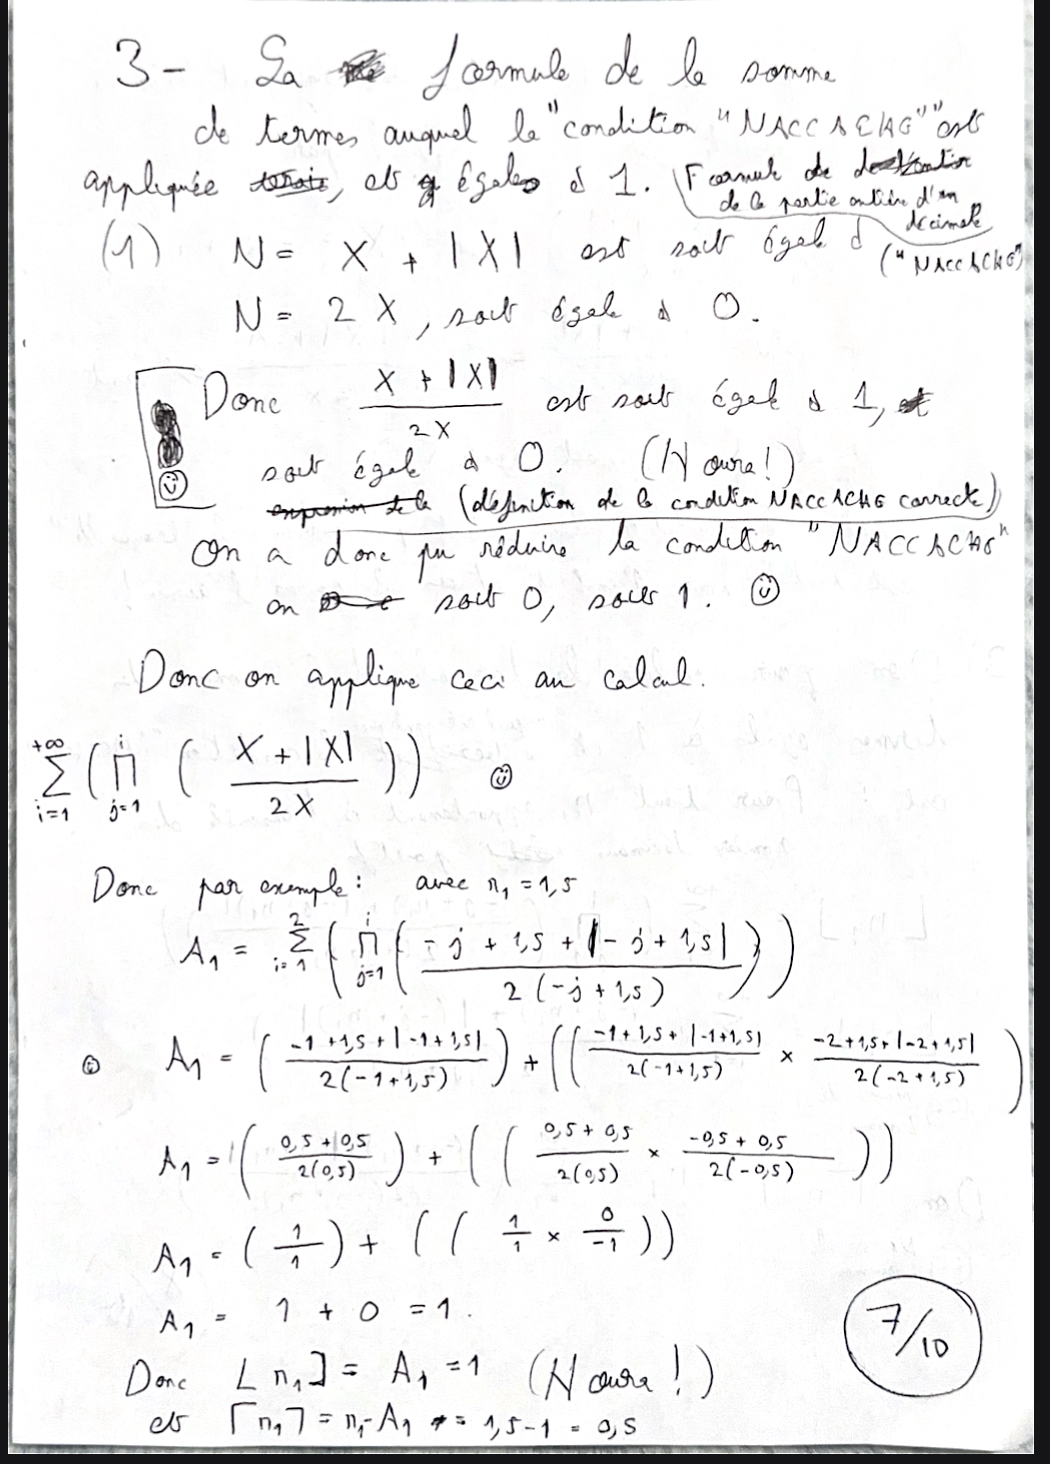 3- La formule de la somme
de termes auquel la "condition "NACCACHG"" est
appliquée, est égale à 1. (Formule de
de la partie entière d'un
décimale
("NACCACHG")
(1) N = X + |X| est soit égale à
N = 2X, soit égale à 0.
Donc \frac{X + |X|}{2X} est soit égale à 1,
soit égale à 0. (Houra!)
(définition de la condition NACCACHG correcte)
On a donc pu réduire la condition "NACCACHG"
en soit 0, soit 1. ☺
Donc on applique ceci au calcul.
\sum_{i=1}^{+∞} ( \prod_{j=1}^{i} ( \frac{X + |X|}{2X} )) ☺
Donc par exemple : avec n₁ = 1,5
A₁ = \sum_{i=1}^{2} ( \prod_{j=1}^{i} ( \frac{-j + 1,5 + |-j + 1,5|}{2(-j + 1,5)} ))
☺ A₁ = ( \frac{-1 + 1,5 + |-1 + 1,5|}{2(-1 + 1,5)} ) + (( \frac{-1 + 1,5 + |-1 + 1,5|}{2(-1 + 1,5)} × \frac{-2 + 1,5 + |-2 + 1,5|}{2(-2 + 1,5)} )
A₁ = ( \frac{0,5 + 0,5}{2(0,5)} ) + (( \frac{0,5 + 0,5}{2(0,5)} × \frac{-0,5 + 0,5}{2(-0,5)} ))
A₁ = ( \frac{1}{1} ) + (( \frac{1}{1} × \frac{0}{-1} ))
A₁ = 1 + 0 = 1.
7/10
Donc ⌊n₁⌋ = A₁ = 1 (Houra!)
et ⌈n₁⌉ = n₁ - A₁ = 1,5 - 1 = 0,5